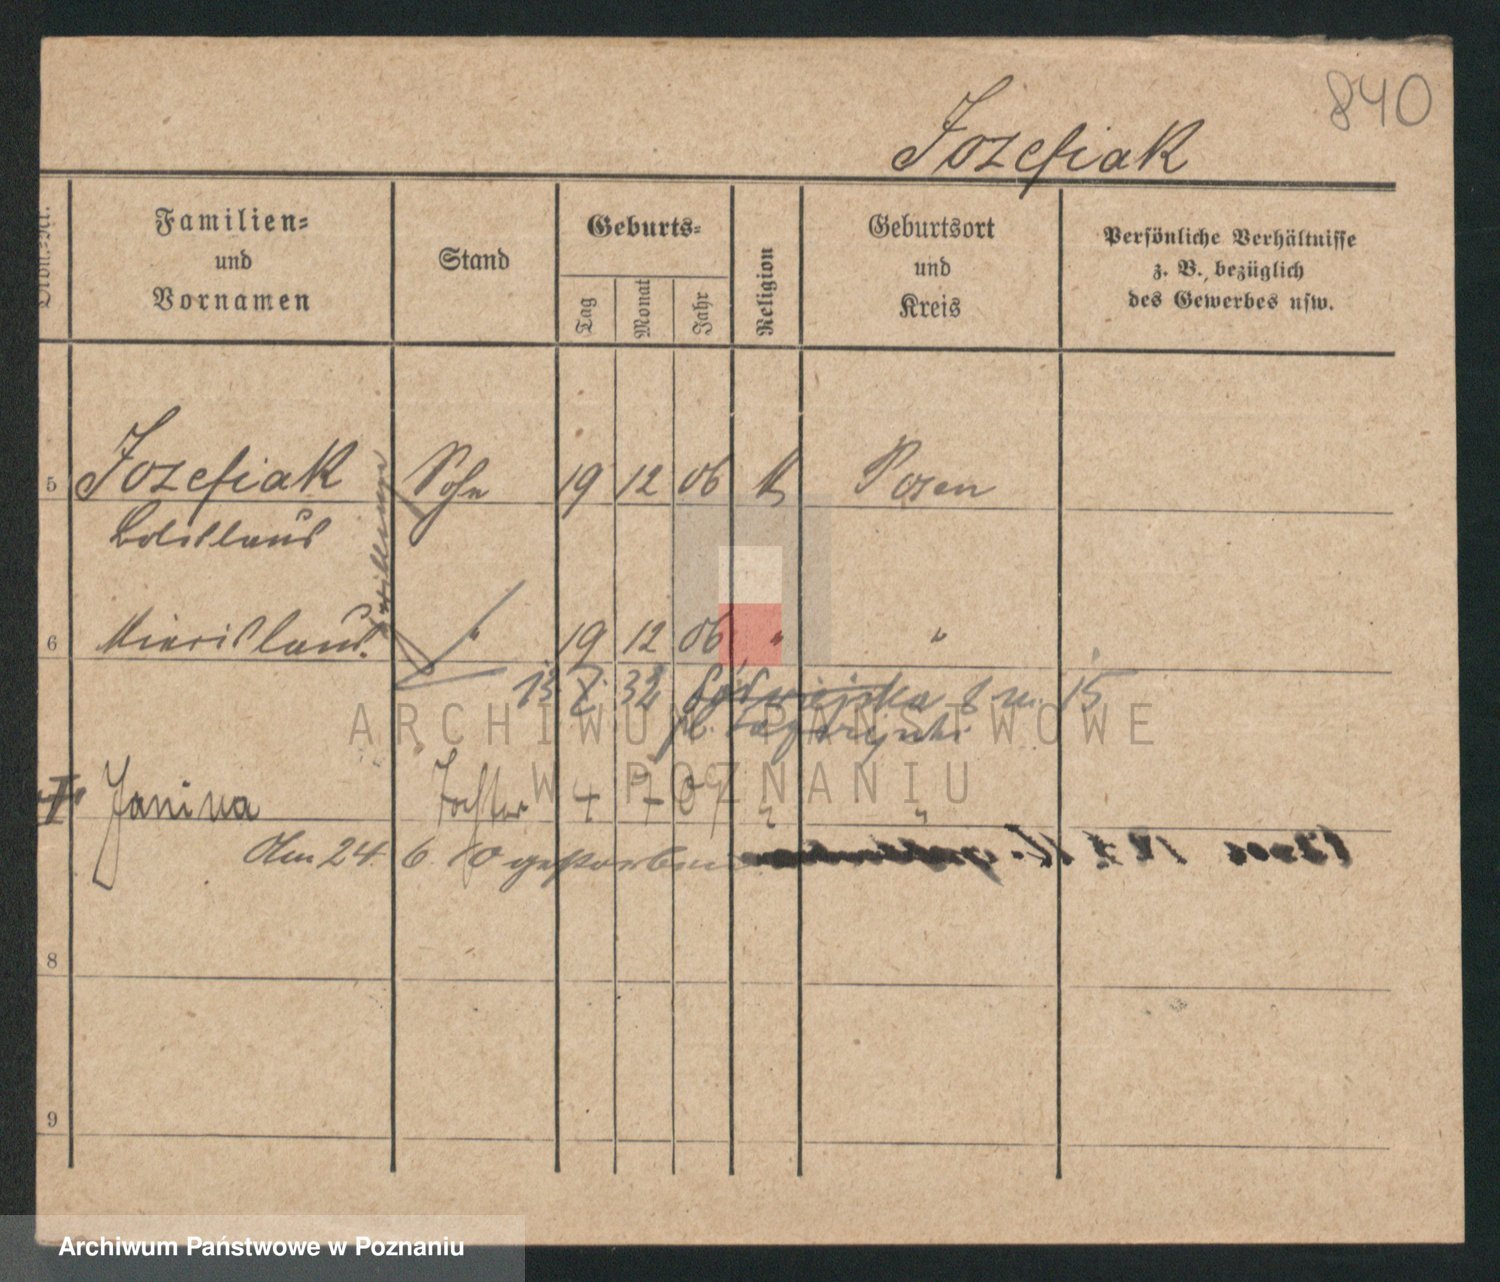 840
Jozefiak
Ordn.-Nr.
Familien-
und
Vornamen
Stand
Geburts-
Tag
Monat
Jahr
Religion
Geburtsort
und
Kreis
Persönliche Verhältnisse
z. B. bezüglich
des Gewerbes usw.
5 Jozefiak Sohn 19 12 06 K Posen
Boleslaus
Zwillinge
6 Miecislaus. " 19 12 06 " "
13 X 32 8 m. 15
Janina Tochter 4 7 09 " "
Am 24. 6. 10 gestorben
8
9
ARCHIWUM PAŃSTWOWE
W POZNANIU
Archiwum Państwowe w Poznaniu